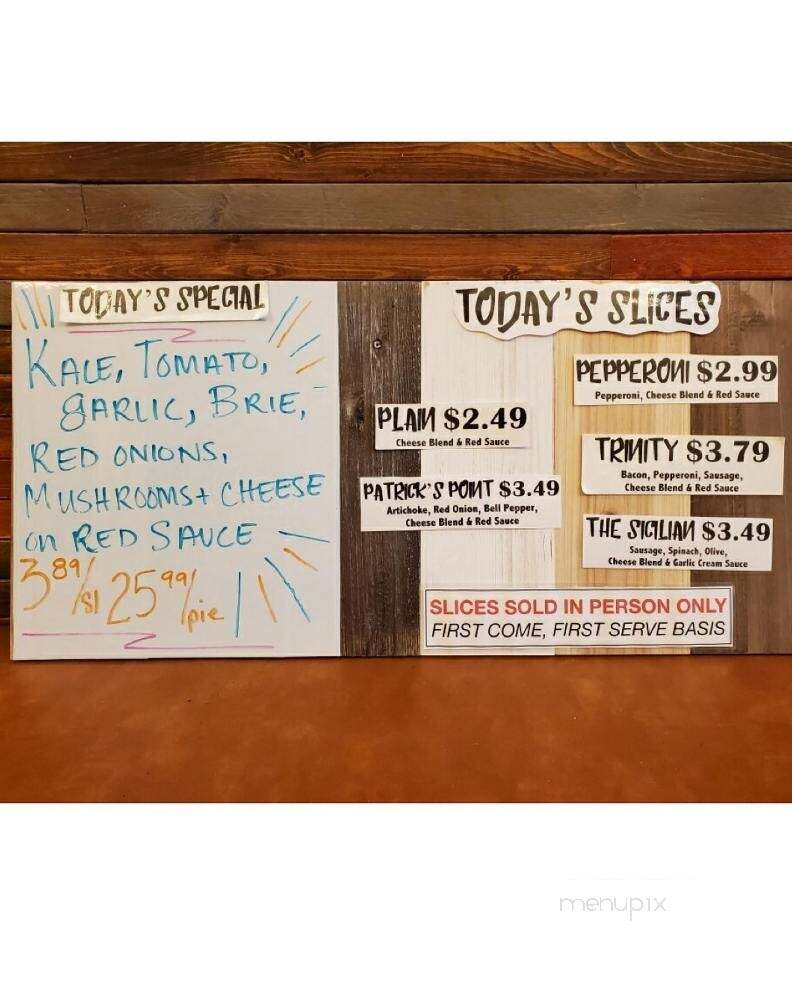 TODAY'S SPECIAL
KALE, TOMATO,
GARLIC, BRIE,
RED ONIONS,
MUSHROOMS + CHEESE
on RED SAUCE
3 89/sl 25 99/pie
TODAY'S SLICES
PLAIN $2.49
Cheese Blend & Red Sauce
PATRICK'S POINT $3.49
Artichoke, Red Onion, Bell Pepper,
Cheese Blend & Red Sauce
PEPPERONI $2.99
Pepperoni, Cheese Blend & Red Sauce
TRINITY $3.79
Bacon, Pepperoni, Sausage,
Cheese Blend & Red Sauce
THE SICILIAN $3.49
Sausage, Spinach, Olive,
Cheese Blend & Garlic Cream Sauce
SLICES SOLD IN PERSON ONLY
FIRST COME, FIRST SERVE BASIS
menupix